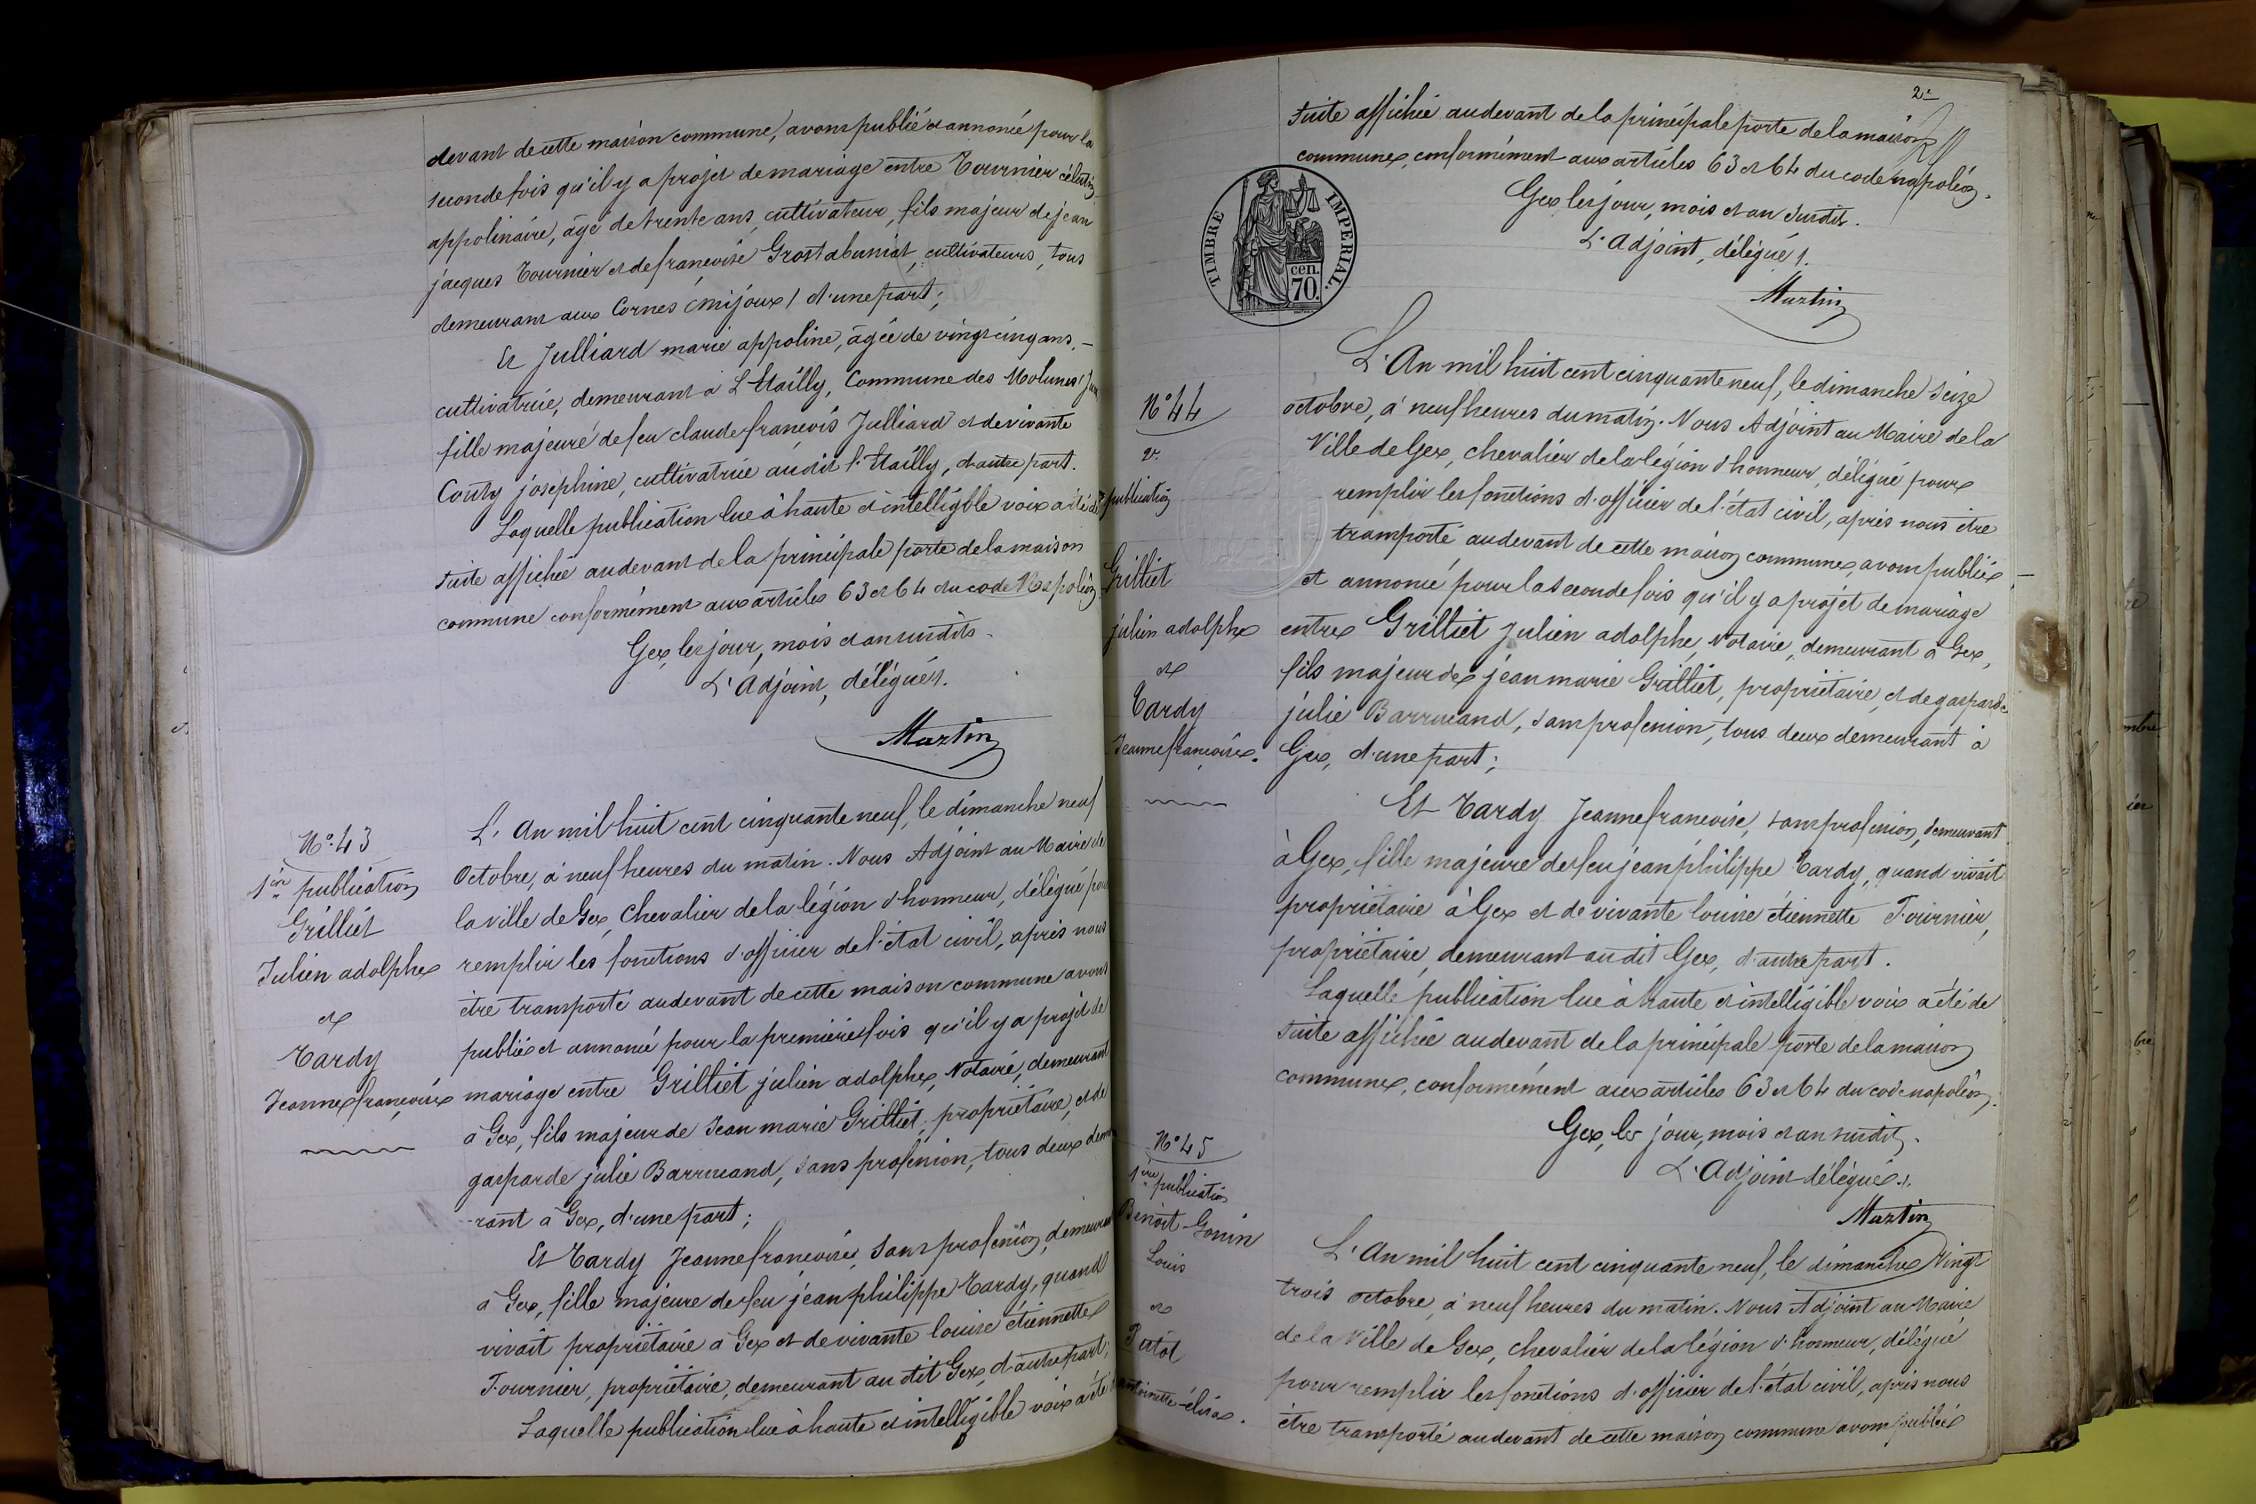 devant de cette maison commune, avons publié et annoncé pour la
seconde fois qu'il y a projet de mariage entre Tournier célestin
appolinaire, âgé de trente ans, cultivateur, fils majeur de jean
jacques Tournier et de françoise Grostabussiat, cultivateurs, tous
demeurant aux Cornes (mijoux) d'une part;
Et Julliard marie appoline, âgée de vingt cinq ans,
cultivatrice, demeurant à L'Etailly, Commune des Molunes
fille majeure de feu claude françois Julliard et de vivante
Couty joséphine, cultivatrice au dit l'Etailly, d'autre part.
Laquelle publication lue à haute et intelligible voix a été de
suite affichée au devant de la principale porte de la maison
commune conformément aux articles 63 et 64 du code Napoléon
Gex, les jour, mois et an susdits.
L'Adjoint, délégué.
Martin
N° 43
1ère publication
Grilliet
Julien adolphe
et
Tardy
Jeanne françoise
L'An mil huit cent cinquante neuf, le dimanche neuf
Octobre, à neuf heures du matin. Nous Adjoint au Maire de
la ville de Gex, Chevalier de la légion d'honneur, délégué pour
remplir les fonctions d'officier de l'état civil, après nous
être transporté au devant de cette maison commune avons
publié et annoncé pour la première fois qu'il y a projet de
mariage entre Grilliet julien adolphe, Notaire, demeurant
à Gex, fils majeur de Jean marie Grilliet, propriétaire, et de
gasparde julie Barrucand, sans profession, tous deux demeu
-rant à Gex, d'une part;
Et Tardy Jeanne françoise, sans profession, demeurant
à Gex, fille majeure de feu jean philippe Tardy, quand
vivait propriétaire à Gex et de vivante louise étiennette
Fournier, propriétaire, demeurant au dit Gex, d'autre part;
Laquelle publication lue à haute et intelligible voix a été
2e
suite affichée au devant de la principale porte de la maison
commune, conformément aux articles 63 et 64 du code napoléon.
Gex les jour, mois et an susdits.
L'Adjoint, délégué.
Martin
TIMBRE IMPERIAL.
cen.
70.
N° 44
2e
publication
Grilliet
julien adolphe
et
Tardy
Jeanne françoise.
L'An mil huit cent cinquante neuf, le dimanche seize
octobre, à neuf heures du matin. Nous Adjoint au Maire de la
Ville de Gex, chevalier de la légion d'honneur, délégué pour
remplir les fonctions d'officier de l'état civil, après nous être
transporté au devant de cette maison commune, avons publié
et annoncé pour la seconde fois qu'il y a projet de mariage
entre Grilliet julien adolphe, Notaire, demeurant à Gex,
fils majeur de jean marie Grilliet, propriétaire, et de gasparde
julie Barrucand, sans profession, tous deux demeurant à
Gex, d'une part;
Et Tardy Jeanne françoise, sans profession, demeurant
à Gex, fille majeure de feu jean philippe Tardy, quand vivait
propriétaire à Gex et de vivante louise étiennette Fournier,
propriétaire, demeurant au dit Gex, d'autre part.
Laquelle publication lue à haute et intelligible voix a été de
suite affichée au devant de la principale porte de la maison
commune, conformément aux articles 63 et 64 du code napoléon.
Gex, les jour, mois et an susdits.
L'Adjoint délégué.
Martin
N° 45
1ère publication
Benoit-Gonin
Louis
et
antoinette-élisa.
L'An mil huit cent cinquante neuf, le dimanche Vingt
trois octobre, à neuf heures du matin. Nous Adjoint au Maire
de la Ville de Gex, chevalier de la légion d'honneur, délégué
pour remplir les fonctions d'officier de l'état civil, après nous
être transporté au devant de cette maison commune avons publié